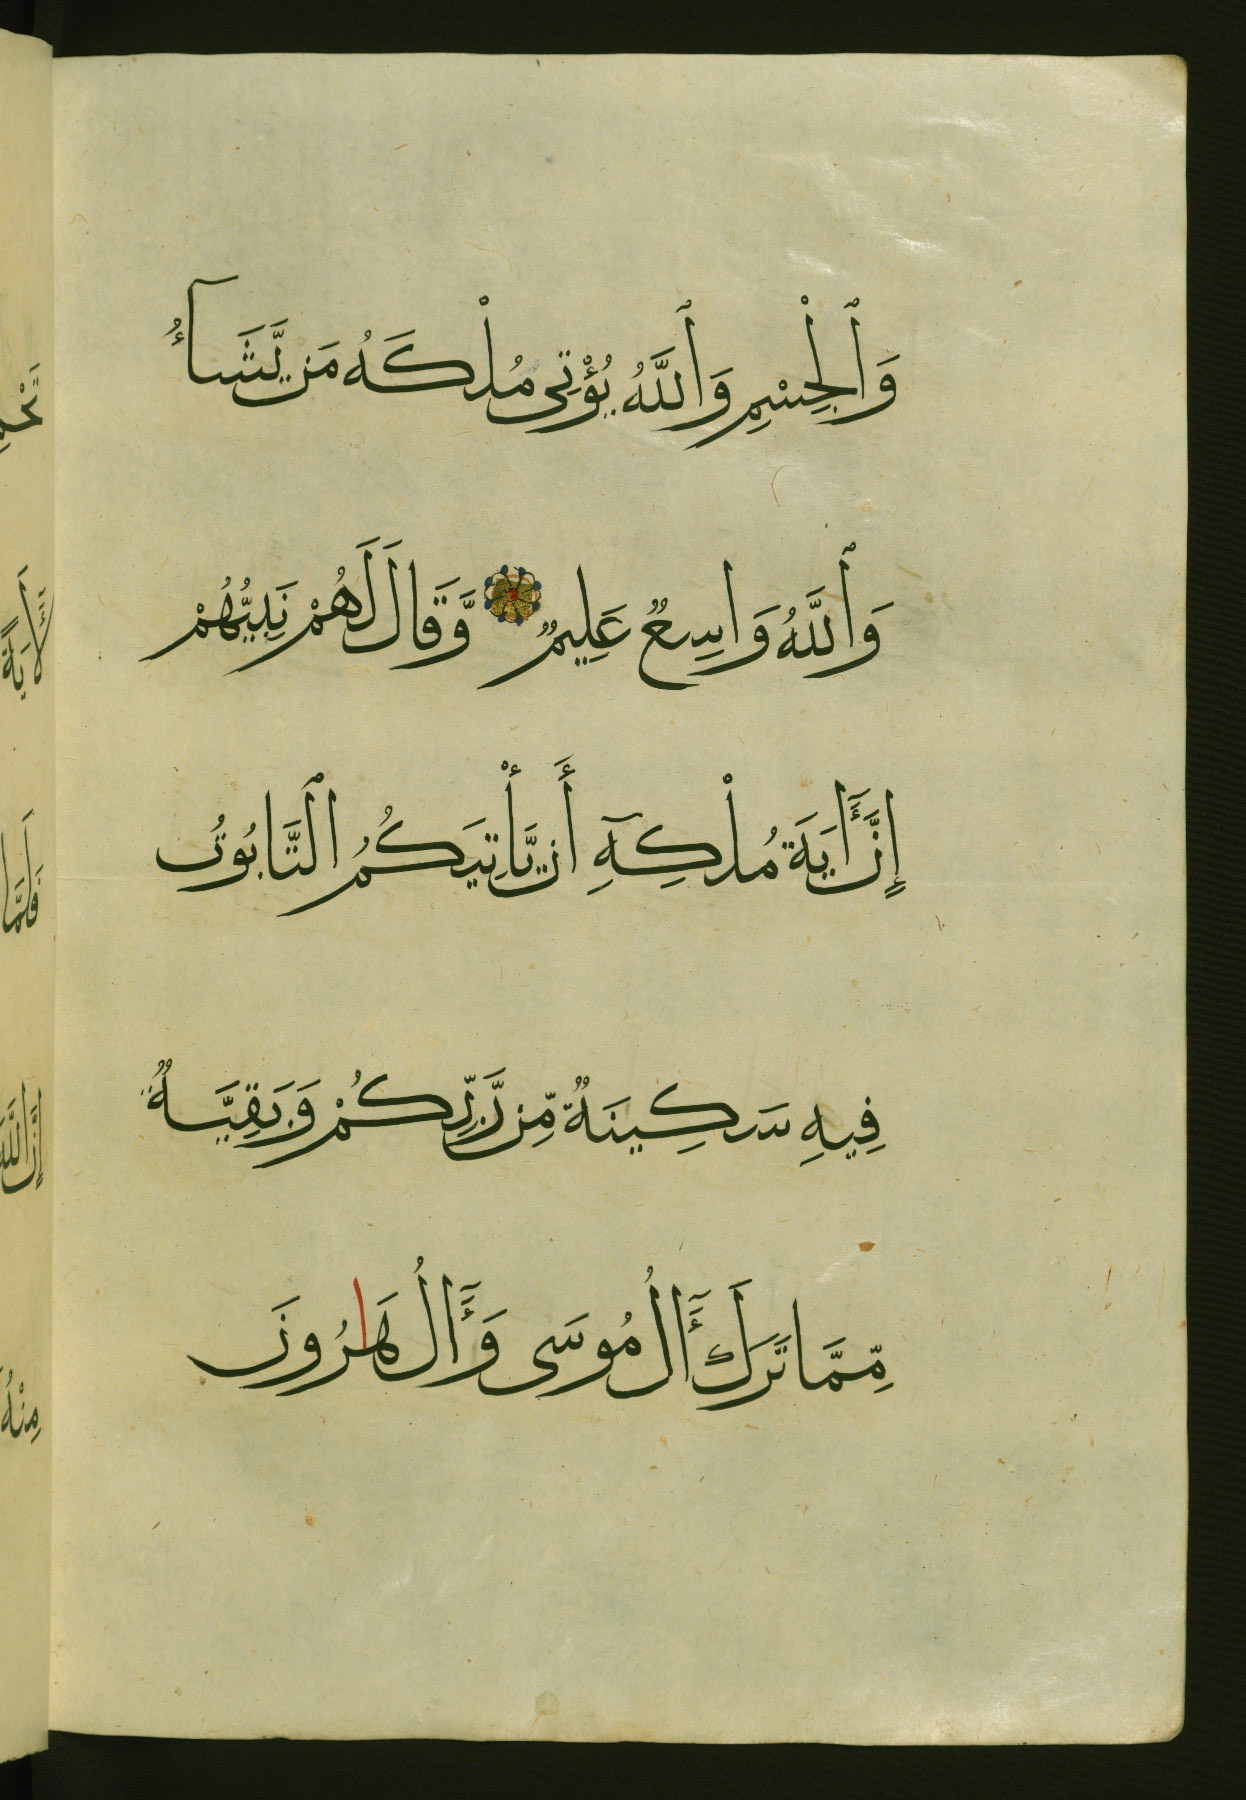 وَٱلْجِسْمِ وَٱللَّهُ يُؤْتِى مُلْكَهُ مَن يَّشَآءُ
وَٱللَّهُ وَاسِعٌ عَلِيمٌ وَّقَالَ لَهُمْ نَبِيُّهُمْ
إِنَّ ءَايَةَ مُلْكِهِٓ أَن يَّأْتِيَكُمُ ٱلتَّابُوتُ
فِيهِ سَكِينَةٌ مِّن رَّبِّكُمْ وَبَقِيَّةٌ
مِّمَّا تَرَكَ ءَالُ مُوسَى وَءَالُ هَارُونَ